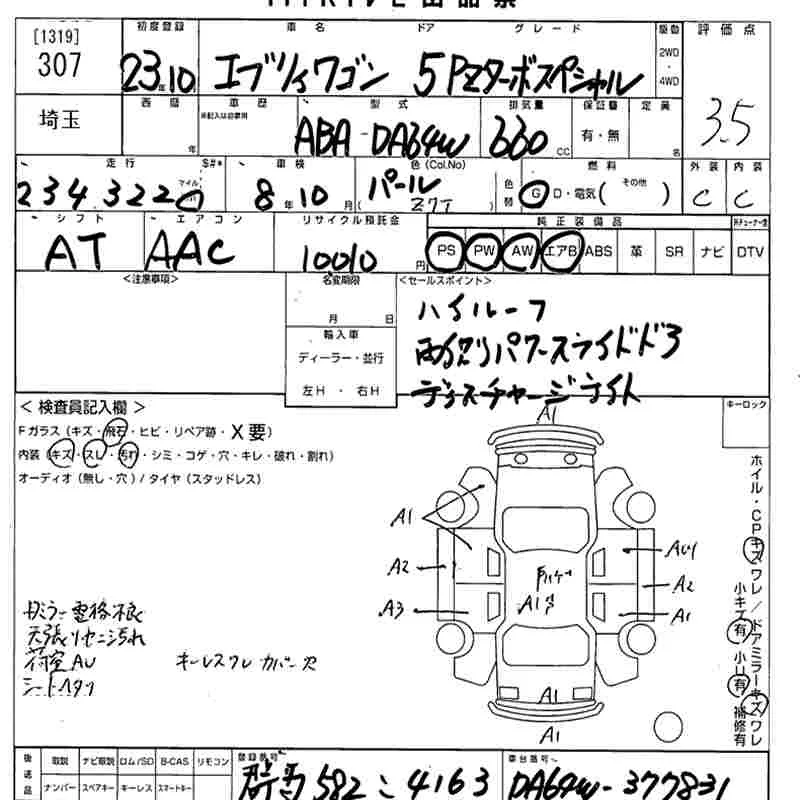 [1319]
307
埼玉
初度登録
車名 ドア グレード
駆動
評価点
23年10
エブリイワゴン 5 PZターボスペシャル
2WD
・
4WD
3.5
西暦
車歴
型式
排気量
保証書
定員
年
※記入は自家用
ABA-DA64W
660
CC
有・無
名
走行
S#*
車検
色(Col.No)
燃料
外装
内装
234,322
マイル
8年10月
パール
Z7T
色替
G D・電気(その他 )
C
C
シフト
エアコン
リサイクル預託金
純正装備品
AT
AAC
10010
円
PS PW AW エアB ABS 革 SR ナビ DTV
<注意事項>
名変期限
月 日
<セールスポイント>
ハイルーフ
輸入車
ディーラー・並行
左H ・ 右H
ディスチャージライト
<検査員記入欄>
Fガラス(キズ・飛石・ヒビ・リペア跡・X要)
内装(キズ・スレ・汚れ・シミ・コゲ・穴・キレ・破れ・割れ)
オーディオ(無し・穴)/タイヤ(スタッドレス)
キーロック
ホイル・CPキズワレ/ドアミラーキズワレ
小キズ有 小U有 補修有
A1
A1
A2
A3
A1
AU1
A2
A1
A1
A1
天張リセニ汚れ
荷室AU
キーレスワレ カバー欠
シートヘタリ
後送品
取説 ナビ取説 ロム/SD B-CAS リモコン
ナンバー スペアキー キーレス スマートキー
登録番号
群馬 582 こ 4163
車台番号
DA64W-377831